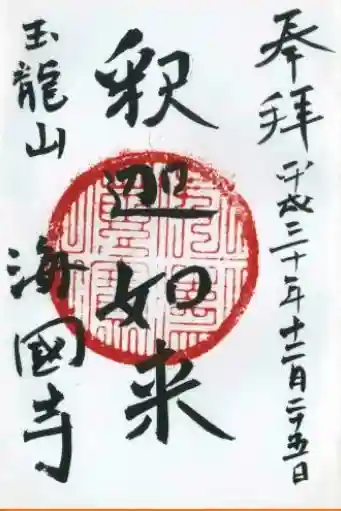 奉拝
平成三十年十二月二十五日
釈迦如来
玉龍山
海國寺